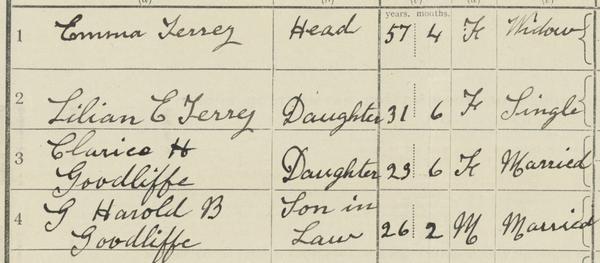 years. months.
1 Emma Terrey Head 57 4 F Widow
2 Lilian E Terrey Daughter 31 6 F Single
3 Clarice H Goodliffe Daughter 23 6 F Married
4 G Harold B Goodliffe Son in Law 26 2 M Married